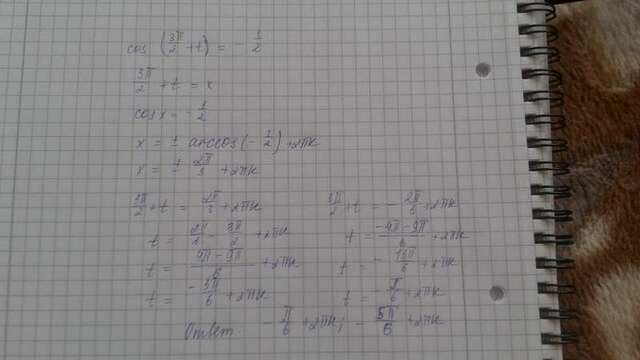 cos (3π/2 + t) = - 1/2
3π/2 + t = x
cos x = - 1/2
x = ± arccos(- 1/2) + 2πk
x = ± 2π/3 + 2πk
3π/2 + t = 2π/3 + 2πk
t = 2π/3 - 3π/2 + 2πk
t = (4π - 9π)/6 + 2πk
t = - 5π/6 + 2πk
3π/2 + t = - 2π/3 + 2πk
t = (-4π - 9π)/6 + 2πk
t = - 13π/6 + 2πk
t = - π/6 + 2πk
Ответ - π/6 + 2πk; - 5π/6 + 2πk